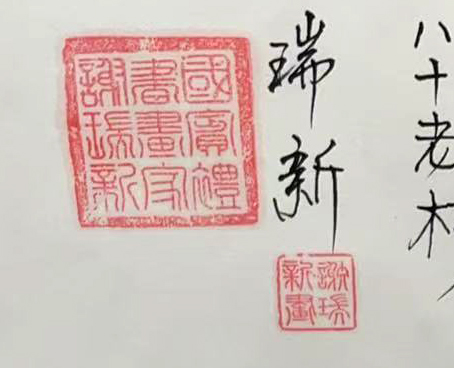 八十老
瑞新
國賓禮
書畫家
謝瑞新
謝瑞
新畫